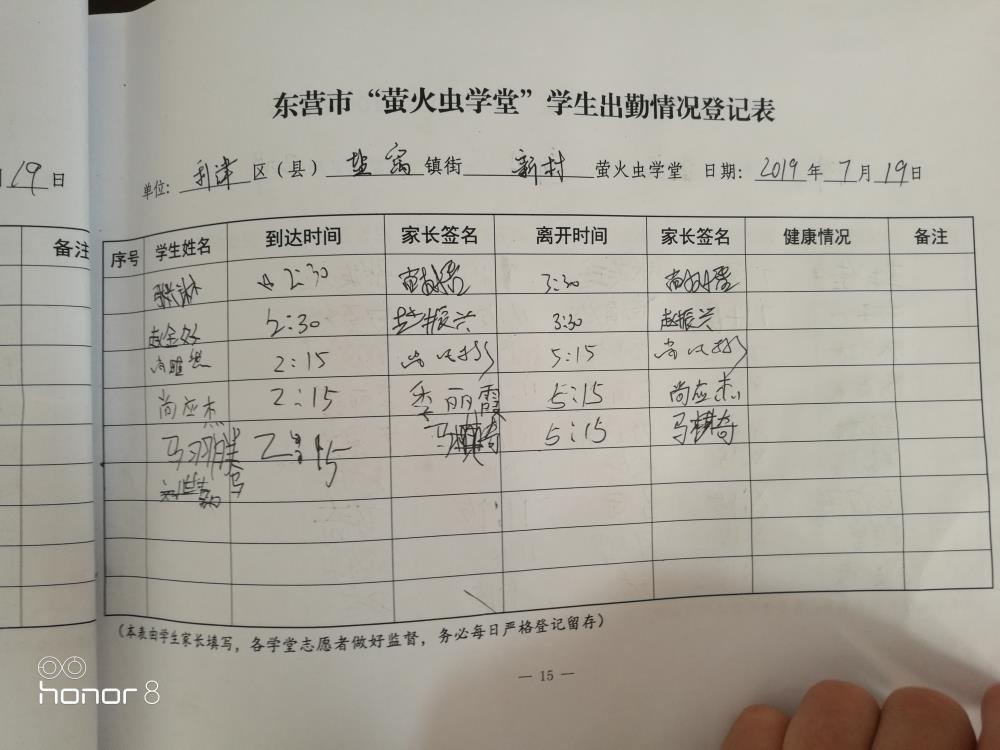 月19日
备注
东营市“萤火虫学堂”学生出勤情况登记表
单位: 利津 区（县） 盐窝 镇街 新村 萤火虫学堂 日期: 2019 年 7 月 19 日
序号 学生姓名 到达时间 家长签名 离开时间 家长签名 健康情况 备注
2:30 3:30
2:30 赵振兴 3:30 赵振兴
2:15 5:15
尚应杰 2:15 丽霞 5:15 尚应杰
马羽 2:15 5:15 马棋奇
（本表由学生家长填写，各学堂志愿者做好监督，务必每日严格登记留存）
— 15 —
honor 8